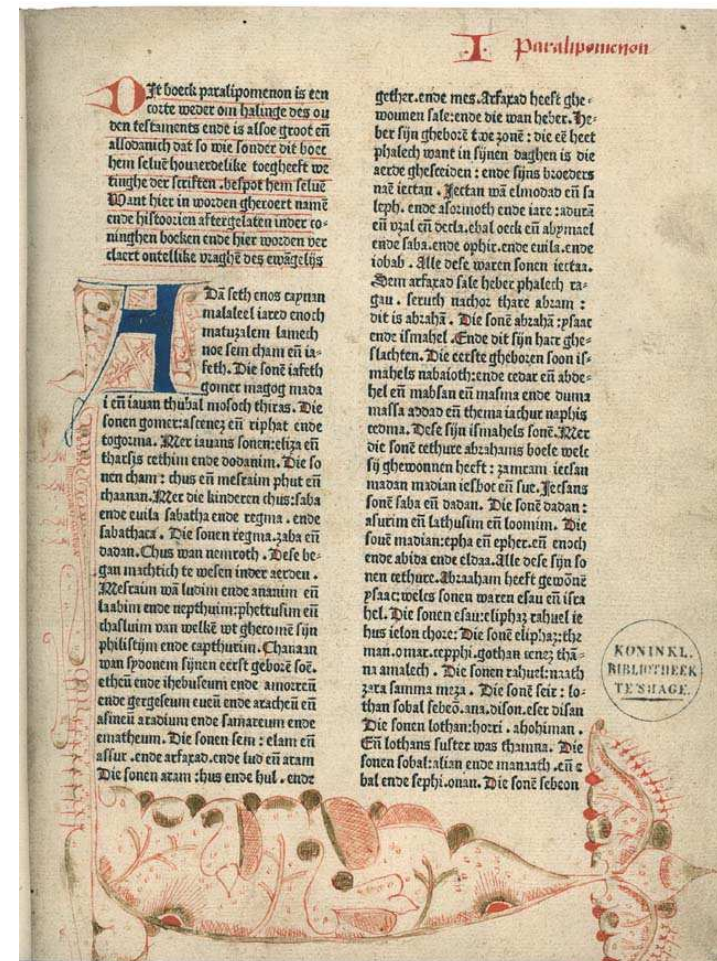 I Paralipomenon
Dit boeck paralipomenon is een
corte weder om halinge des ou
den testaments ende is alsoe groot en̄
alsodanich dat so wie sonder dit boec
hem seluē houerdelike toegheeft we
tinghe der scriften . bespot hem seluē
Want hier in worden gheroert namē
ende histoorien aftergelaten inder co-
ninghen boeken ende hier worden ver
claert ontellike vraghē des ewāgelijs
Adā seth enos caynan
malaleel iared enoch
matuzalem lamech
noe sem cham en̄ ia-
feth. Die sonē iafeth
gomer magog mada
i en̄ iauan thubal mosoch thiras. Die
sonen gomer:ascenez en̄ riphat ende
togorma. Mer iauans sonen:eliza en̄
tharsis cethim ende dodanim. Die so
nen cham : chus en̄ mesraim phut en̄
chaanan. Mer die kinderen chus:saba
ende euila sabatha ende regma . ende
sabathaca . Die sonen regma.zaba en̄
dadan. Chus wan nemroth . Dese be-
gan machtich te wesen inder aerden .
Mesraim wā ludim ende ananim en̄
laabim ende nepthuim:phettusim en̄
chasluim van welkē wt ghecomē sijn
philistijm ende capthurim. Chanaan
wan sydonem sijnen eerst geborē soē.
etheū ende ihebuseum ende amorreū
ende gergeseum eueū ende aracheū en̄
asineū aradium ende samareum ende
ematheum. Die sonen sem : elam en̄
assur .ende arfaxad.ende lud en̄ aram
Die sonen aram :hus ende hul . ende
gether.ende mes. Arfaxad heeft ghe-
wonnen sale:ende die wan heber. He-
ber sijn gheborē twe zonē : die eē heet
phalech want in sijnen daghen is die
aerde ghesceiden : ende sijns broeders
naē iectan . Jectan wā elmodad en̄ sa
leph. ende asormoth ende iare :adurā
en̄ vzal en̄ decla.ebal oeck en̄ abymael
ende saba.ende ophir.ende euila.ende
iobab . Alle dese waren sonen iectaa.
Sem arfaxad sale heber phalech ra-
gau . seruch nachor thare abram :
dit is abrahā . Die sonē abrahā :ysaac
ende ismahel .Ende dit sijn hare ghe-
slachten. Die eerste gheboren soon is-
mahels nabaioth:ende cedar en̄ abde-
hel en̄ mabsan en̄ masma ende duma
massa addad en̄ thema iachur naphis
cedma. Dese sijn ismahels sonē. Mer
die sonē cethure abrahams boele welc
sij ghewonnen heeft : zamram iecsan
madan madian iesboc en̄ sue. Jecsans
sonē saba en̄ dadan. Die sonē dadan :
asurim en̄ lathusim en̄ loomim. Die
sonē madian:epha en̄ epher.en̄ enoch
ende abida ende eldaa. Alle dese sijn so
nen cethure. Abraaham heeft gewōnē
ysaac:welcs sonen waren esau en̄ isra
hel. Die sonen esau:eliphaz rahuel ie
hus ielon chore: Die sonē eliphaz:the
man.omar.sepphi.gothan cenez thā-
na amalech . Die sonen rahuel:naath
zara samma meza . Die sonē seir : lo-
than sobal sebeō.ana.dison.eser disan
Die sonen lothan:horri . ahohiman .
En̄ lothans suster was thamna. Die
sonen sobal:alian ende manaath .en̄ e
bal ende sephi.onan. Die sonē sebeon
KONINKL.
BIBLIOTHEEK
TE'SHAGE.